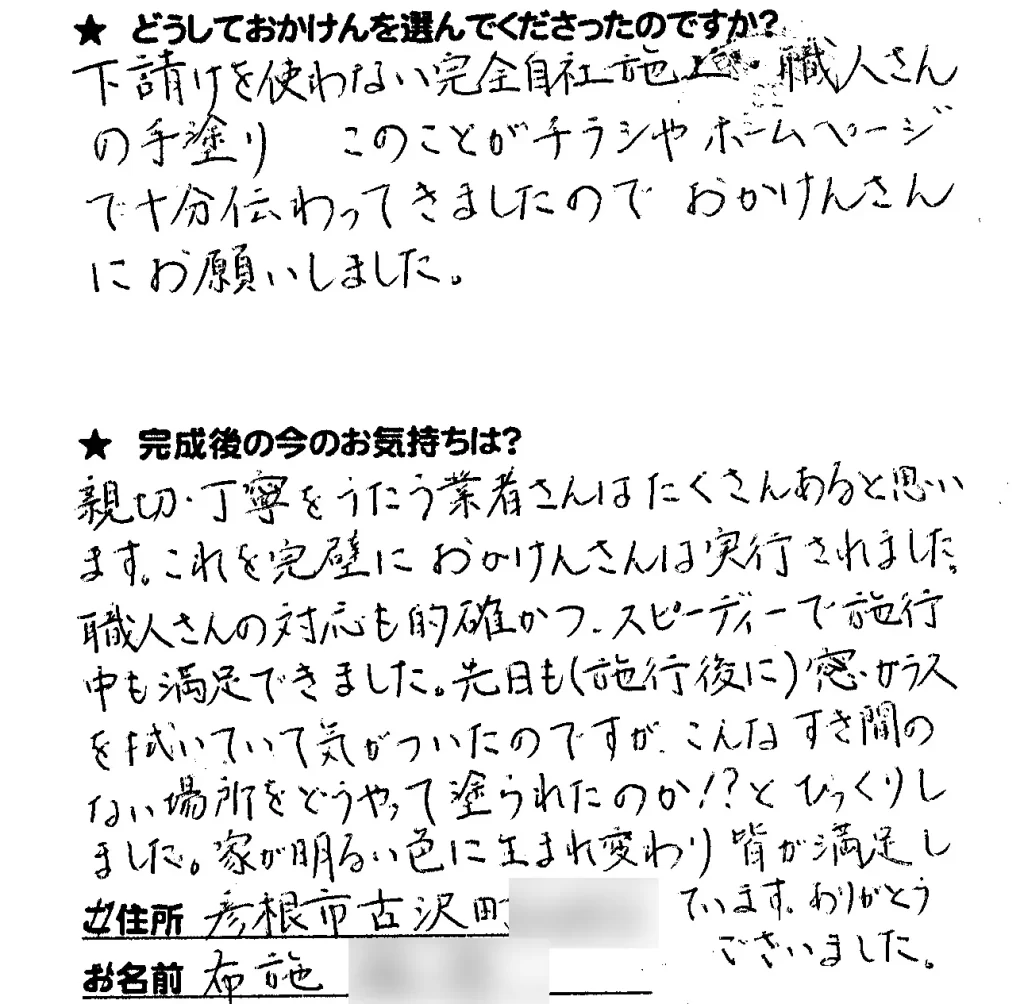 ★ どうしておかけんを選んでくださったのですか?
下請けを使わない完全自社施工・職人さん
の手塗り このことがチラシやホームページ
で十分伝わってきましたので おかけんさん
にお願いしました。
★ 完成後の今のお気持ちは?
親切・丁寧をうたう業者さんはたくさんあると思い
ます。これを完璧に おかけんさんは実行されました。
職人さんの対応も的確かつ、スピーディーで施行
中も満足できました。先日も(施行後に)窓・ガラス
を拭いていて気がついたのですが、こんなすき間の
ない場所をどうやって塗られたのか!?とびっくりし
ました。家が明るい色に生まれ変わり皆が満足し
ています。ありがとう
ございました。
ご住所 彦根市古沢町
お名前 布施